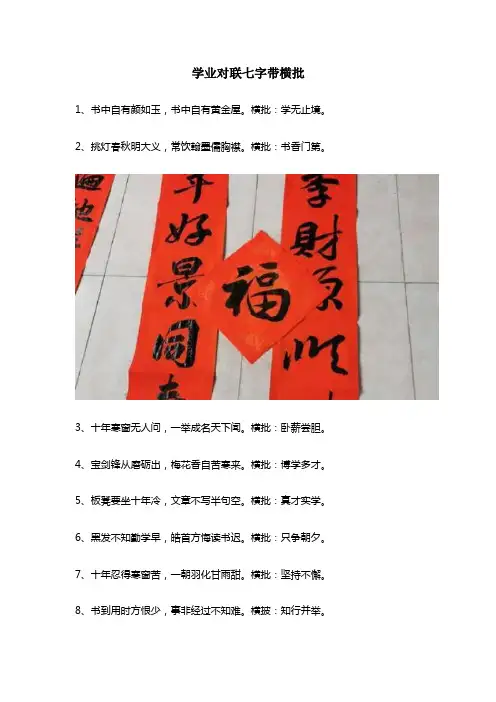 学业对联七字带横批
1、书中自有颜如玉，书中自有黄金屋。横批：学无止境。
2、挑灯春秋明大义，常饮翰墨儒胸襟。横批：书香门第。
年好景
福
季財源順
3、十年寒窗无人问，一举成名天下闻。横批：卧薪尝胆。
4、宝剑锋从磨砺出，梅花香自苦寒来。横批：博学多才。
5、板凳要坐十年冷，文章不写半句空。横批：真才实学。
6、黑发不知勤学早，皓首方悔读书迟。横批：只争朝夕。
7、十年忍得寒窗苦，一朝羽化甘雨甜。横批：坚持不懈。
8、书到用时方恨少，事非经过不知难。横披：知行并举。